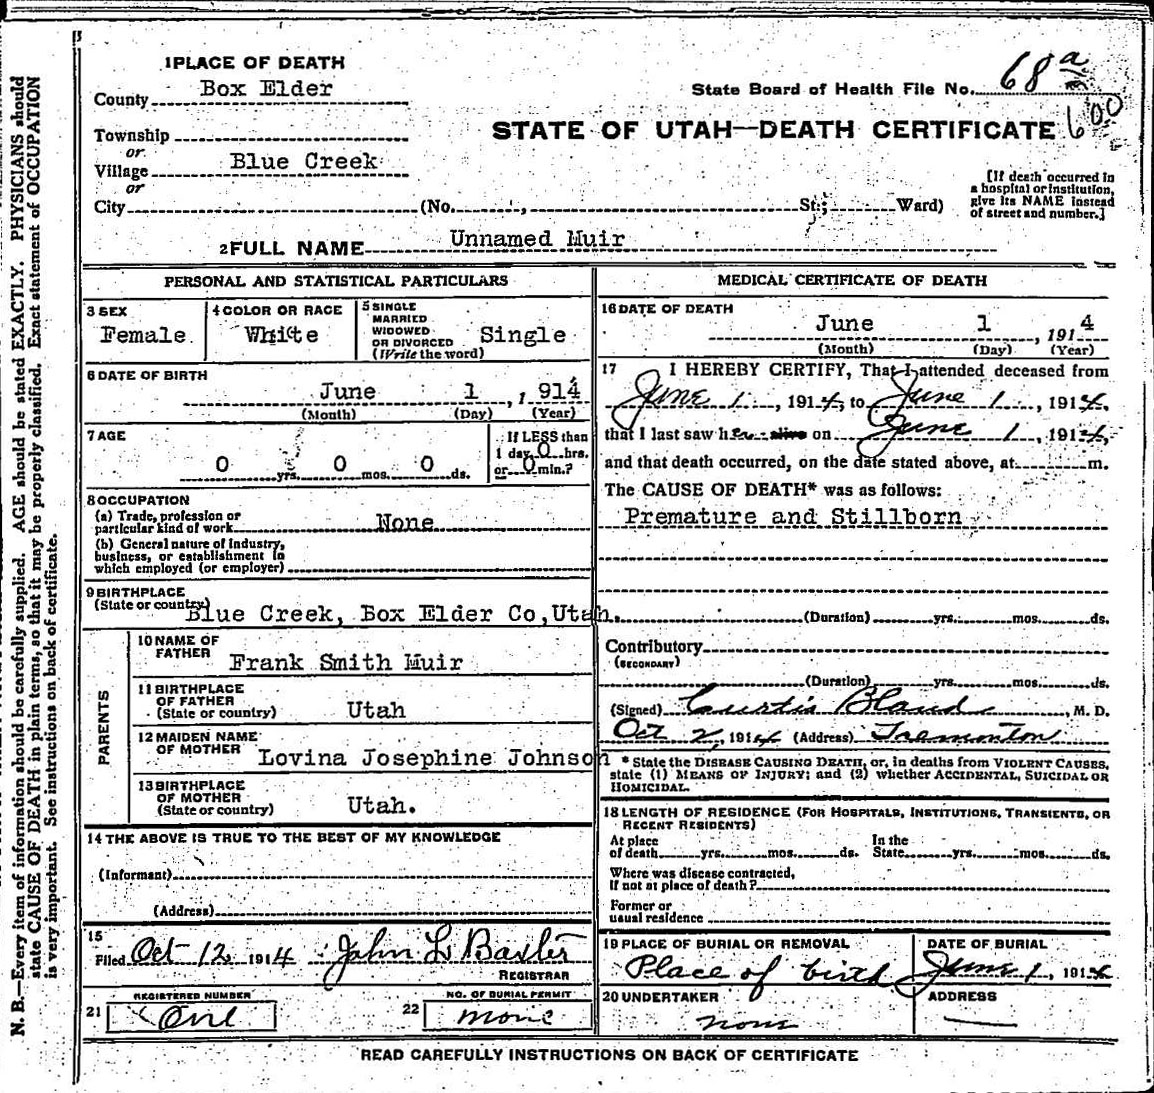 N. B.—Every item of information should be carefully supplied. AGE should be stated EXACTLY. PHYSICIANS should
state CAUSE OF DEATH in plain terms, so that it may be properly classified. Exact statement of OCCUPATION
is very important. See instructions on back of certificate.
1 PLACE OF DEATH
County Box Elder
Township
or
Village Blue Creek
or
City (No. , St.; Ward)
State Board of Health File No. 68a
600
STATE OF UTAH—DEATH CERTIFICATE
[If death occurred in
a hospital or institution,
give its NAME instead
of street and number.]
2 FULL NAME Unnamed Muir
PERSONAL AND STATISTICAL PARTICULARS
3 SEX
Female
4 COLOR OR RACE
White
5 SINGLE
MARRIED
WIDOWED
OR DIVORCED
(Write the word)
Single
6 DATE OF BIRTH
June 1, 1914
(Month) (Day) (Year)
7 AGE
0 yrs. 0 mos. 0 ds.
If LESS than
1 day, 0 hrs.
or 0 min.?
8 OCCUPATION
(a) Trade, profession or
particular kind of work None
(b) General nature of industry,
business, or establishment in
which employed (or employer)
9 BIRTHPLACE
(State or country) Blue Creek, Box Elder Co, Utah.
PARENTS
10 NAME OF
FATHER Frank Smith Muir
11 BIRTHPLACE
OF FATHER
(State or country) Utah
12 MAIDEN NAME
OF MOTHER Lovina Josephine Johnson
13 BIRTHPLACE
OF MOTHER
(State or country) Utah.
14 THE ABOVE IS TRUE TO THE BEST OF MY KNOWLEDGE
(Informant)
(Address)
15
Filed Oct 12 1914 John L Baxter
REGISTRAR
REGISTERED NUMBER
21 One
NO. OF BURIAL PERMIT
22 none
MEDICAL CERTIFICATE OF DEATH
16 DATE OF DEATH
June 1, 1914
(Month) (Day) (Year)
17 I HEREBY CERTIFY, That I attended deceased from
June 1, 1914, to June 1, 1914,
that I last saw her alive on June 1, 1914,
and that death occurred, on the date stated above, at m.
The CAUSE OF DEATH* was as follows:
Premature and Stillborn
(Duration) yrs. mos. ds.
Contributory
(SECONDARY)
(Duration) yrs. mos. ds.
(Signed) Curtis Bland, M. D.
Oct 2, 1914 (Address) Tremonton
* State the DISEASE CAUSING DEATH, or, in deaths from VIOLENT CAUSES,
state (1) MEANS OF INJURY; and (2) whether ACCIDENTAL, SUICIDAL OR
HOMICIDAL.
18 LENGTH OF RESIDENCE (FOR HOSPITALS, INSTITUTIONS, TRANSIENTS, OR
RECENT RESIDENTS)
At place
of death yrs. mos. ds. In the
State yrs. mos. ds.
Where was disease contracted,
if not at place of death?
Former or
usual residence
19 PLACE OF BURIAL OR REMOVAL
Place of birth
DATE OF BURIAL
June 1, 1914
20 UNDERTAKER
none
ADDRESS
READ CAREFULLY INSTRUCTIONS ON BACK OF CERTIFICATE